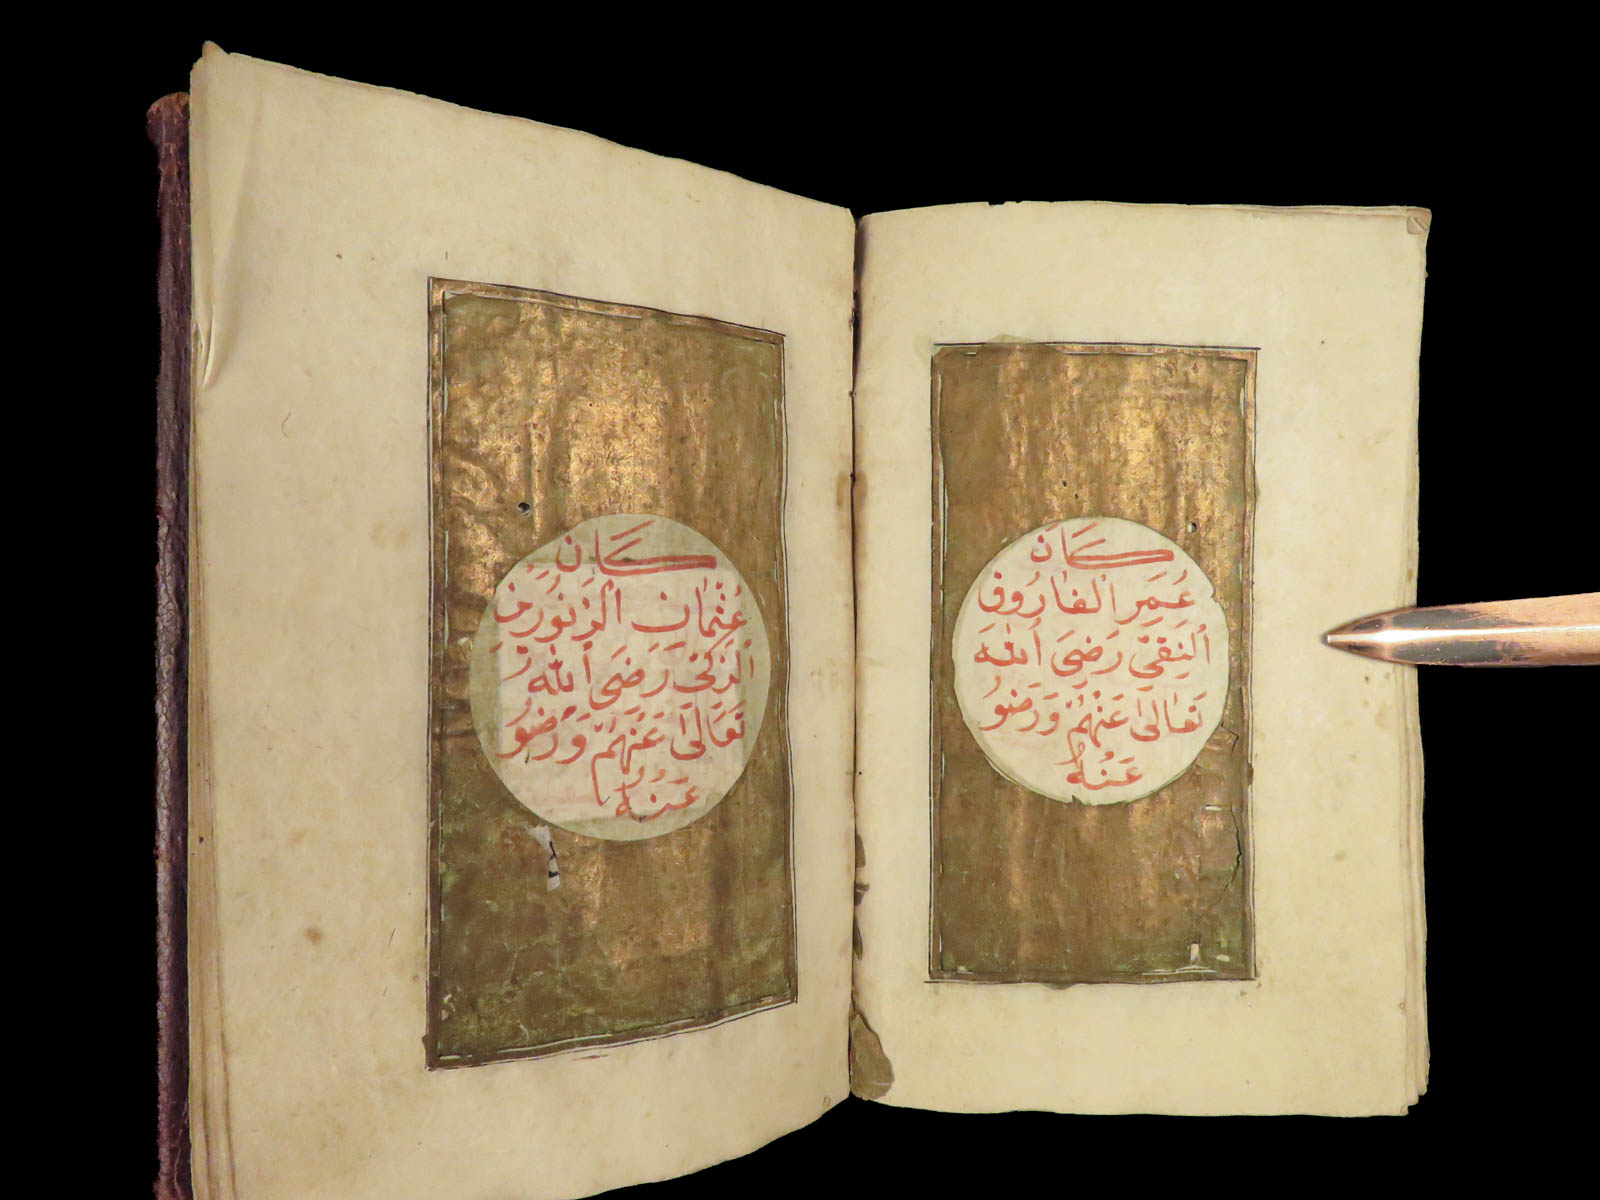 كَانَ
عُمَرِ الفَارُوقِ
النَّقِيِّ رَضِيَ اللهُ
تَعَالىٰ عَنْهُمْ وَرَضُو
عَنْهُ
كَانَ
عُثْمَانِ الزِنُورَيْنِ
الزَكِيِّ رَضِيَ اللهُ
تَعَالىٰ عَنْهُمْ وَرَضُو
عَنْهُ